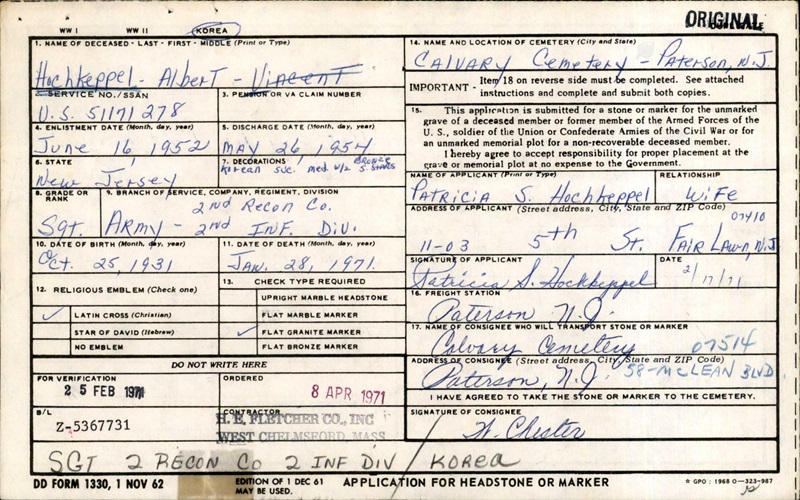 ORIGINAL
WW I WW II KOREA
1. NAME OF DECEASED - LAST - FIRST - MIDDLE (Print or Type)
Hochkeppel - Albert - Vincent
2. SERVICE NO./SSAN
U.S. 51171278
3. PENSION OR VA CLAIM NUMBER
4. ENLISTMENT DATE (Month, day, year)
June 16, 1952
5. DISCHARGE DATE (Month, day, year)
MAY 26, 1954
6. STATE
New Jersey
7. DECORATIONS
Korean svc. med w/2 BRONZE S. STARS
8. GRADE OR RANK
Sgt.
9. BRANCH OF SERVICE, COMPANY, REGIMENT, DIVISION
2nd Recon Co.
Army - 2nd INF. Div.
10. DATE OF BIRTH (Month, day, year)
Oct. 25, 1931
11. DATE OF DEATH (Month, day, year)
JAN. 28, 1971.
12. RELIGIOUS EMBLEM (Check one)
✓ LATIN CROSS (Christian)
STAR OF DAVID (Hebrew)
NO EMBLEM
13. CHECK TYPE REQUIRED
UPRIGHT MARBLE HEADSTONE
FLAT MARBLE MARKER
✓ FLAT GRANITE MARKER
FLAT BRONZE MARKER
DO NOT WRITE HERE
FOR VERIFICATION
25 FEB 1971
ORDERED
8 APR 1971
B/L
Z-5367731
CONTRACTOR
H. E. FLETCHER CO., INC
WEST CHELMSFORD, MASS
14. NAME AND LOCATION OF CEMETERY (City and State)
CALVARY Cemetery - Paterson, N.J.
IMPORTANT - Item 18 on reverse side must be completed. See attached
instructions and complete and submit both copies.
15. This application is submitted for a stone or marker for the unmarked
grave of a deceased member or former member of the Armed Forces of the
U. S., soldier of the Union or Confederate Armies of the Civil War or for
an unmarked memorial plot for a non-recoverable deceased member.
I hereby agree to accept responsibility for proper placement at the
grave or memorial plot at no expense to the Government.
NAME OF APPLICANT (Print or Type)
PATRICIA S. Hochkeppel
RELATIONSHIP
Wife
ADDRESS OF APPLICANT (Street address, City, State and ZIP Code)
07410
11-03 5th St. FAIR LAWN, N.J
SIGNATURE OF APPLICANT
Patricia S. Hochkeppel
DATE
2/17/71
16. FREIGHT STATION
Paterson N.J.
17. NAME OF CONSIGNEE WHO WILL TRANSPORT STONE OR MARKER
Calvary Cemetery 07514
ADDRESS OF CONSIGNEE (Street address, City, State and ZIP Code)
Paterson, N.J. 58-McLEAN BLVD
I HAVE AGREED TO TAKE THE STONE OR MARKER TO THE CEMETERY.
SIGNATURE OF CONSIGNEE
H. Chester
SGT 2 RECON Co 2 INF DIV / KOREA
DD FORM 1330, 1 NOV 62
EDITION OF 1 DEC 61 MAY BE USED.
APPLICATION FOR HEADSTONE OR MARKER
☆ GPO : 1968 O—323-987